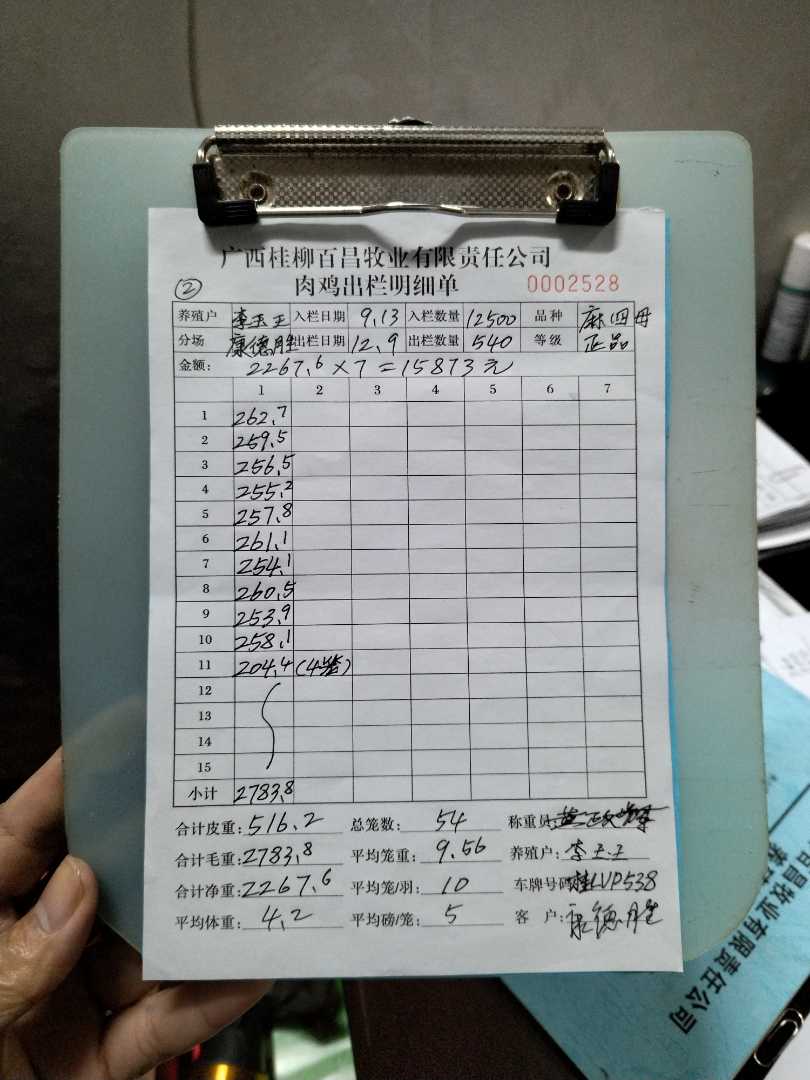 广西桂柳百昌牧业有限责任公司
② 肉鸡出栏明细单 0002528
养殖户 李玉王 入栏日期 9.13 入栏数量 12500 品种 麻四母
分场 康德胜 出栏日期 12.9 出栏数量 540 等级 正品
金额: 2267.6×7=15873元
1 2 3 4 5 6 7
1 262.7
2 259.5
3 256.5
4 255.2
5 257.8
6 261.1
7 254.1
8 260.5
9 253.9
10 258.1
11 204.4 (4笼)
12
13
14
15
小计 2783.8
合计皮重: 516.2 总笼数: 54 称重员:
合计毛重: 2783.8 平均笼重: 9.56 养殖户: 李玉王
合计净重: 2267.6 平均笼/羽: 10 车牌号码: 桂LVP538
平均体重: 4.2 平均磅/笼: 5 客户: 康德胜
百昌牧业有限责任公司